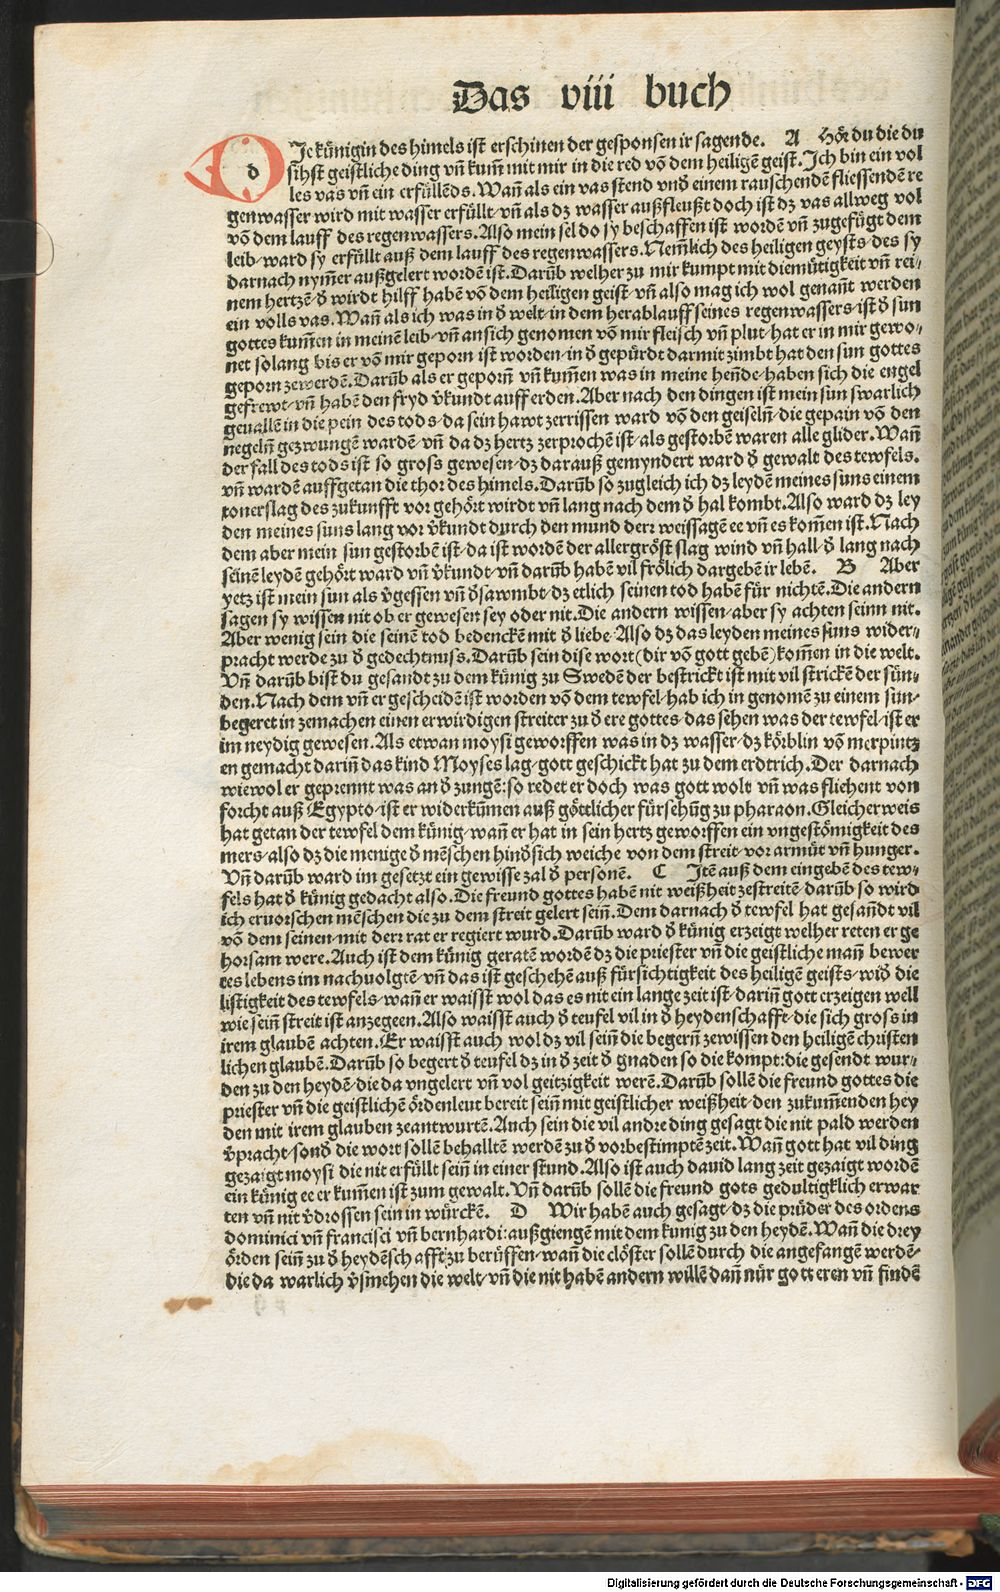 Das viii buch
DJe künigin des himels ist erschinen der gesponsen ir sagende. A Hör du die du
sihst geistliche ding vn̄ kum̄ mit mir in die red vō dem heiligē geist. Ich bin ein vol
les vas vn̄ ein erfüllēds. Wan̄ als ein vas stend vnd einem rauschendē fliessendē re
genwasser wird mit wasser erfüllt vn̄ als dz wasser außfleußt doch ist dz vas allweg vol
vō dem lauff des regenwassers. Also mein sel do sy beschaffen ist wordē vn̄ zugefügt dem
leib/ ward sy erfüllt auß dem lauff des regenwassers. Nem̄lich des heiligen geysts/ des sy
darnach nym̄er außgelert wordē ist. Darūb welher zu mir kumpt mit diemütigkeit vn̄ rei/
nem hertzē/ d̄ wirdt hilff habē vō dem heiligen geist/ vn̄ also mag ich wol genan̄t werden
ein volls vas. Wan̄ als ich was in d̄ welt/ in dem herablauff seines regenwassers/ ist d̄ sun
gottes kum̄en in meinē leib/ vn̄ ansich genomen vō mir fleisch vn̄ plut/ hat er in mir gewo/
net solang bis er vō mir geporn ist worden/ in d̄ gepürdt darmit zimbt hat den sun gottes
geporn zewerdē. Darūb als er geporn̄ vn̄ kum̄en was in meine hen̄de/ haben sich die engel
gefrewt/ vn̄ habē den fryd v̄kundt auff erden. Aber nach den dingen ist mein sun swarlich
geuallē in die pein des tods/ da sein hawt zerrissen ward vō den geiseln̄/ die gepain vō den
negeln̄ gezwungē wardē/ vn̄ da dz hertz zerprochē ist/ als gestorbē waren alle glider. Wan̄
der fall des tods ist so gross gewesen/ dz darauß gemyndert ward d̄ gewalt des tewfels.
vn̄ wardē auffgetan die thor des himels. Darūb so zugleich ich dz leydē meines suns einem
tonerslag des zukunfft vor gehört wirdt vn̄ lang nach dem d̄ hal kombt. Also ward dz ley
den meines suns lang vor v̄kundt durch den mund derr weissagē ee vn̄ es kom̄en ist. Nach
dem aber mein sun gestorbē ist/ da ist wordē der allergröst slag wind vn̄ hall/ d̄ lang nach
seinē leydē gehört ward vn̄ v̄kundt/ vn̄ darūb habē vil frölich dargebē ir lebē. B Aber
yetz ist mein sun als v̄gessen vn̄ v̄sawmbt/ dz etlich seinen tod habē für nichtē. Die andern
sagen sy wissen nit ob er gewesen sey oder nit. Die andern wissen/ aber sy achten seinn nit.
Aber wenig sein die seinē tod bedenckē mit d̄ liebe. Also dz das leyden meines suns wider/
pracht werde zu d̄ gedechtnuss. Darūb sein dise wort (dir vō gott gebē) kom̄en in die welt.
Vn̄ darūb bist du gesandt zu dem künig zu Swedē der bestrickt ist mit vil strickē der sün/
den. Nach dem vn̄ er gescheidē ist worden vō dem tewfel/ hab ich in genomē zu einem sun/
begeret in zemachen einen erwirdigen streiter zu d̄ ere gottes/ das sehen was der tewfel/ ist er
im neydig gewesen. Als etwan moysi geworffen was in dz wasser/ dz körblin vō merpintz
en gemacht darin̄ das kind Moyses lag/ gott geschickt hat zu dem erdtrich. Der darnach
wiewol er geprennt was an d̄ zungē: so redet er doch was gott wolt/ vn̄ was fliehent von
forcht auß Egypto/ ist er widerkūmen auß götlicher fürsehūg zu pharaon. Gleicherweis
hat getan der tewfel dem künig/ wan̄ er hat in sein hertz geworffen ein vngestömigkeit des
mers/ also dz die menige d̄ mēschen hindsich weiche von dem streit/ vor armüt vn̄ hunger.
Vn̄ darūb ward im gesetzt ein gewisse zal d̄ personē. C Itē auß dem eingebē des tew/
fels hat d̄ künig gedacht also. Die freund gottes habē nit weißheit zestreitē/ darūb so wird
ich eruorschen mēschen die zu dem streit gelert sein̄. Dem darnach d̄ tewfel hat gesan̄dt vil
vō dem seinen/ mit derr rat er regiert wurd. Darūb ward d̄ künig erzeigt welher reten er ge
horsam were. Auch ist dem künig geratē wordē dz die priester vn̄ die geistliche man̄ bewer
tes lebens im nachuolgtē/ vn̄ das ist geschehē auß fürsichtigkeit des heiligē geists/ wid̄ die
listigkeit des tewfels/ wan̄ er waisst wol das es nit ein lange zeit ist/ darin̄ gott erzeigen well
wie sein̄ streit ist anzegeen. Also waisst auch d̄ teufel vil in d̄ heydenschafft/ die sich gross in
irem glaubē achten. Er waisst auch wol dz vil sein̄ die begern̄ zewissen den heiligē christen
lichen glaubē. Darūb so begert d̄ teufel dz in d̄ zeit d̄ gnaden so die kompt: die gesendt wur/
den zu den heydē/ die da vngelert vn̄ vol geitzigkeit werē. Darūb sollē die freund gottes die
priester vn̄ die geistlichē ördenleut bereit sein̄ mit geistlicher weißheit/ den zukum̄enden hey
den mit irem glauben zeantwurtē. Auch sein die vil andre ding gesagt die nit pald werden
v̄pracht/ sond̄ die wort sollē behalltē werdē zu d̄ vorbestimptē zeit. Wan̄ gott hat vil ding
gezaigt moysi die nit erfüllt sein̄ in einer stund. Also ist auch dauid lang zeit gezaigt wordē
ein künig ee er kum̄en ist zum gewalt. Vn̄ darūb sollē die freund gots gedultigklich erwar
ten vn̄ nit v̄drossen sein in würckē. D Wir habē auch gesagt/ dz die prüder des ordens
dominici vn̄ francisci vn̄ bernhardi: außgiengē mit dem kunig zu den heydē. Wan̄ die drey
örden sein̄ zu d̄ heydēschafft zu berüffen/ wan̄ die clöster sollē durch die angefangē werdē/
die da warlich v̄smehen die welt/ vn̄ die nit habē andern willē dan̄ nür gott eren vn̄ findē
Digitalisierung gefördert durch die Deutsche Forschungsgemeinschaft - DFG